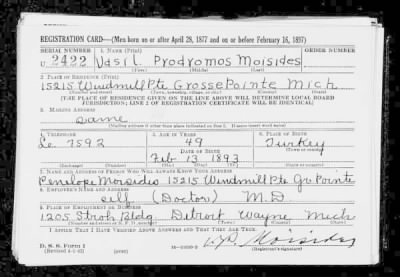 REGISTRATION CARD—(Men born on or after April 28, 1877 and on or before February 16, 1897)
SERIAL NUMBER 1. NAME (Print) ORDER NUMBER
U 2422 Vasil Prodromos Moisides
(First) (Middle) (Last)
2. PLACE OF RESIDENCE (Print)
15215 Windmill Pte Grosse Pointe Mich
(Number and street) (Town, township, village, or city) (County) (State)
[THE PLACE OF RESIDENCE GIVEN ON THE LINE ABOVE WILL DETERMINE LOCAL BOARD
JURISDICTION; LINE 2 OF REGISTRATION CERTIFICATE WILL BE IDENTICAL]
3. MAILING ADDRESS
Same
[Mailing address if other than place indicated on line 2. If same insert word same]
4. TELEPHONE 5. AGE IN YEARS 6. PLACE OF BIRTH
Le. 7592 49 Turkey
DATE OF BIRTH (Town or county)
Feb 13 1893
(Exchange) (Number) (Mo.) (Day) (Yr.) (State or country)
7. NAME AND ADDRESS OF PERSON WHO WILL ALWAYS KNOW YOUR ADDRESS
Penelope Moisides 15215 Windmill Pte Gr. Pointe
8. EMPLOYER'S NAME AND ADDRESS
self (Doctor) M.D.
9. PLACE OF EMPLOYMENT OR BUSINESS
1205 Stroh Bldg Detroit Wayne Mich
(Number and street or R. F. D. number) (Town) (County) (State)
I AFFIRM THAT I HAVE VERIFIED ABOVE ANSWERS AND THAT THEY ARE TRUE.
D. S. S. Form 1
(Revised 4-1-42) Moisides